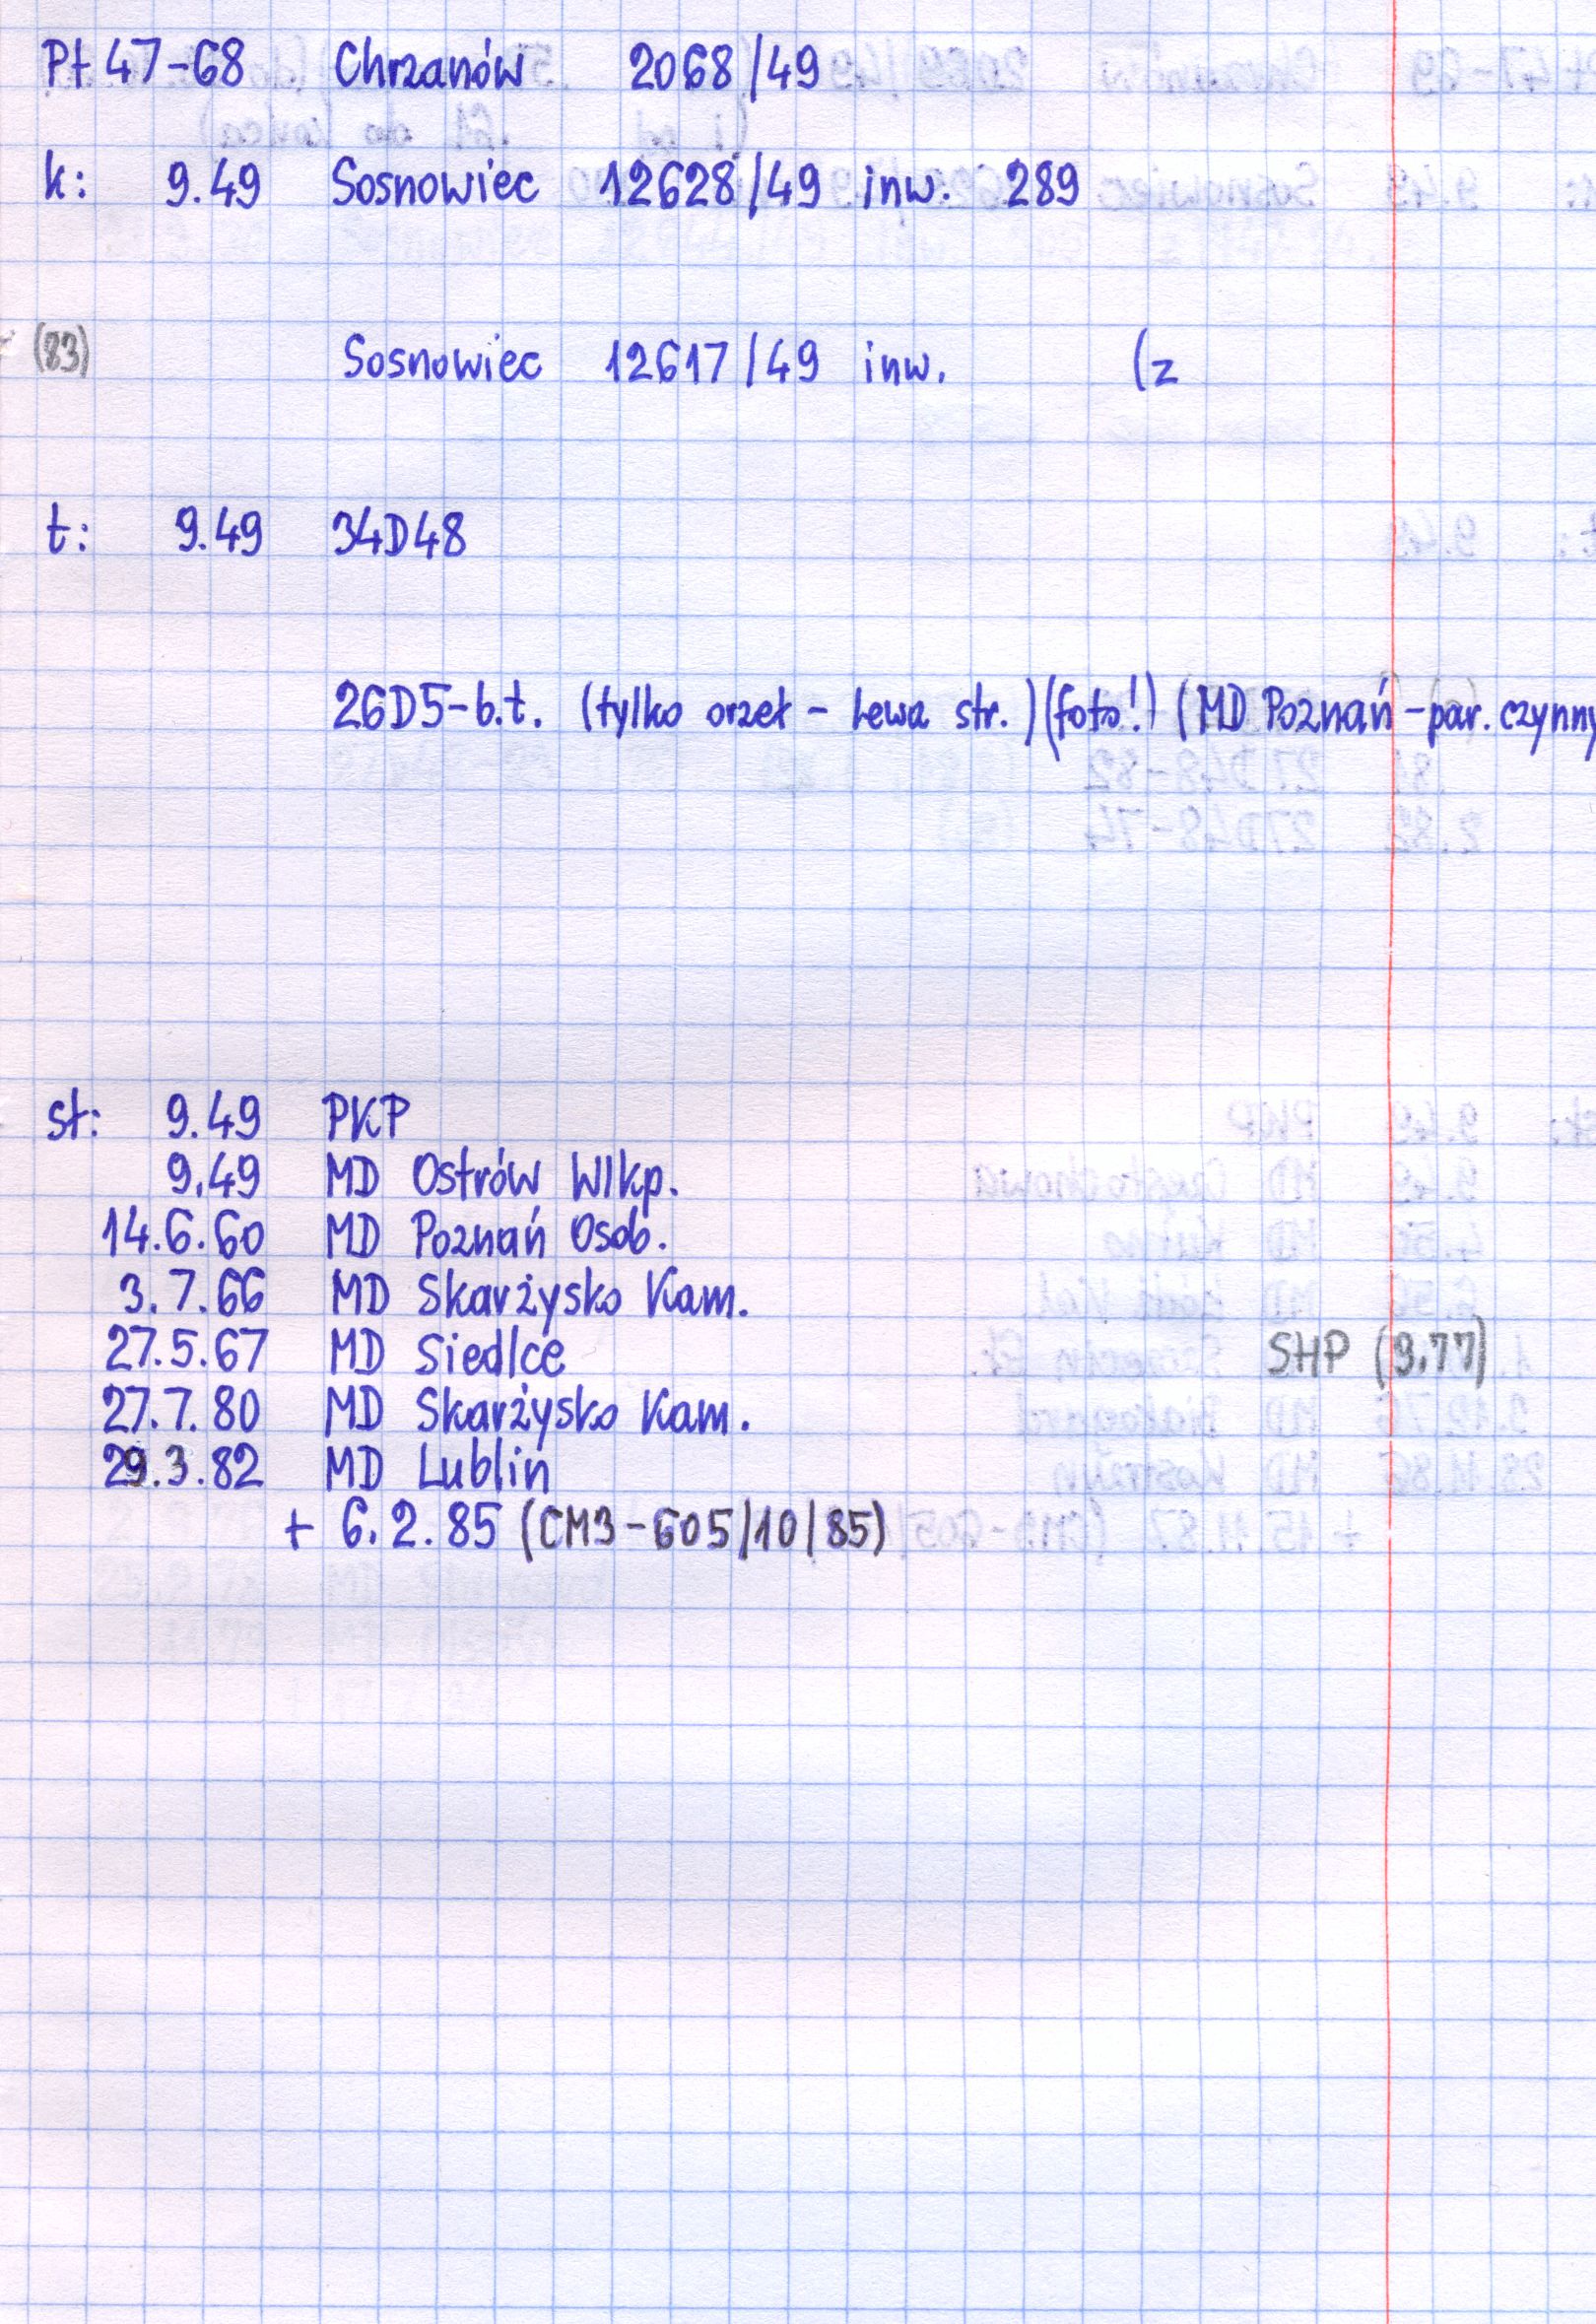 Pt 47-68 Chrzanów 2068/49
k: 9.49 Sosnowiec 12628/49 inw. 289
(83) Sosnowiec 12617/49 inw. (z
t: 9.49 34D48
26D5-b.t. (tylko orzeł - lewa str.) (foto!) (MD Poznań - par. czynny
st: 9.49 PKP
9.49 MD Ostrów Wlkp.
14.6.60 MD Poznań Osob.
3.7.66 MD Skarżysko Kam.
27.5.67 MD Siedlce SHP (9.77)
27.7.80 MD Skarżysko Kam.
29.3.82 MD Lublin
+ 6.2.85 (CM3-605/10/85)